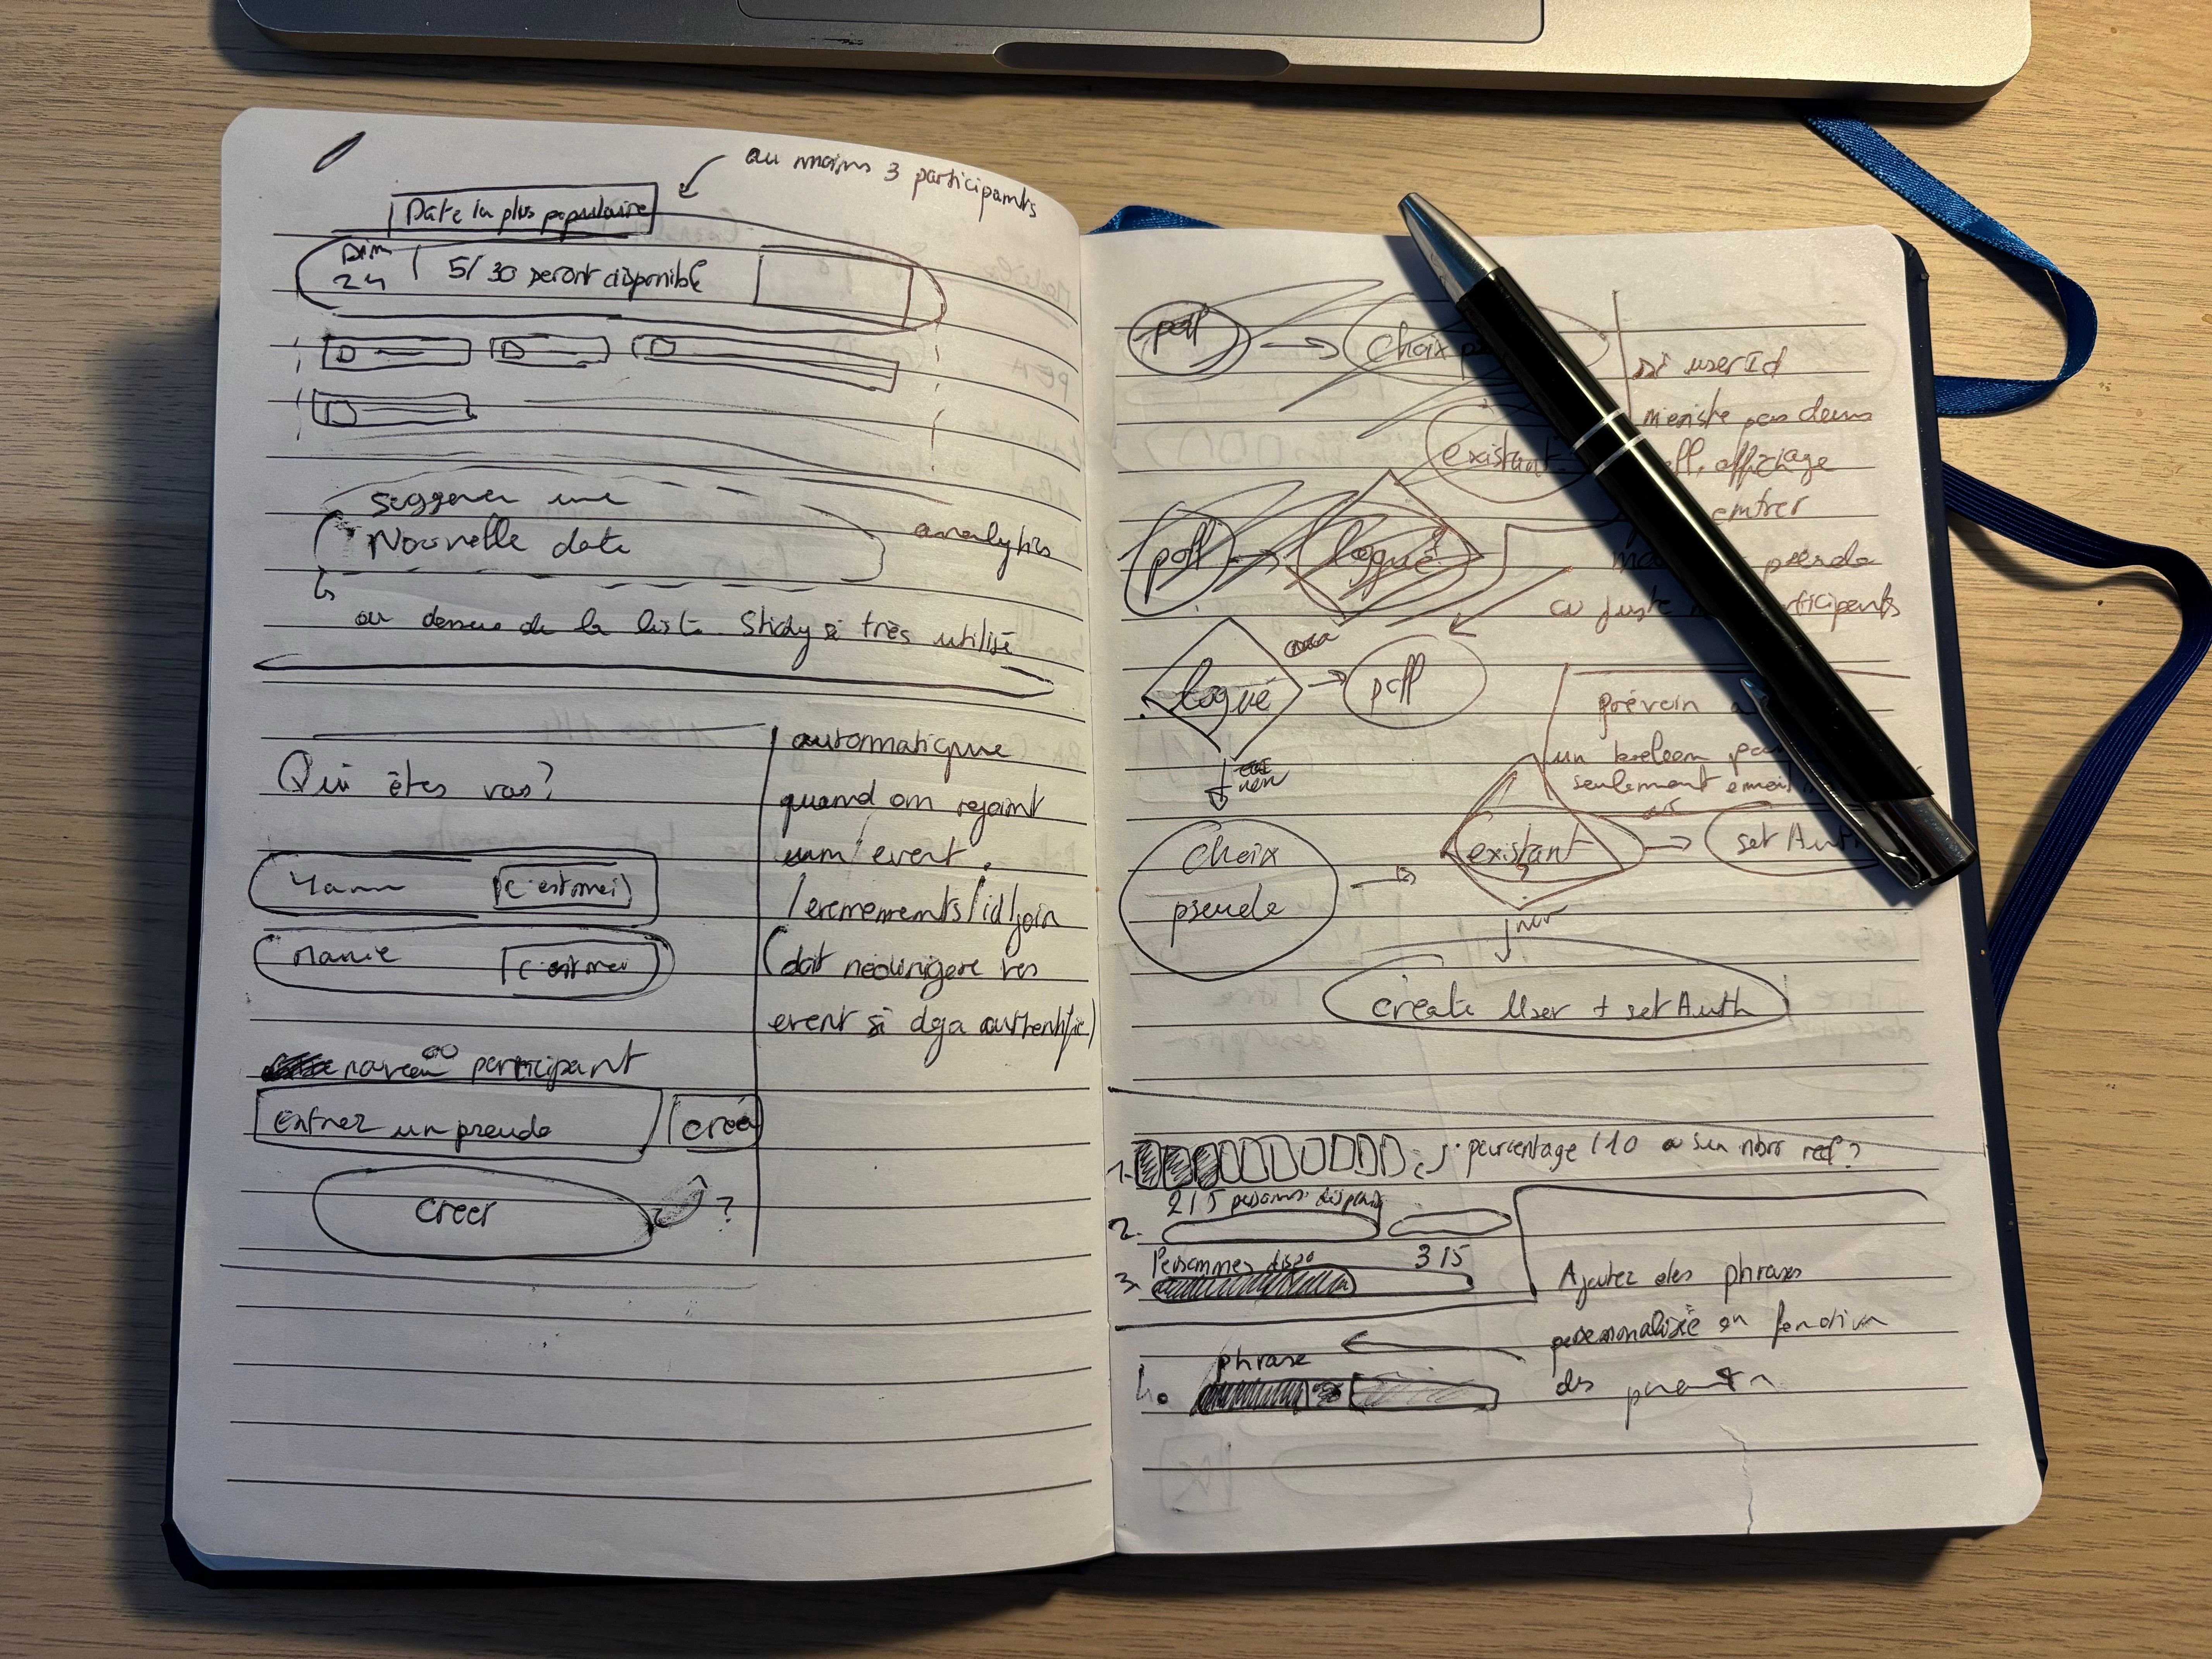 au moins 3 participants
Date la plus populaire
Dim
24
5/30 seront disponible
suggerer une
Nouvelle date
analytics
au dessus de la liste. Sticky si très utilisé
Qui êtes vous?
Yann
c'est moi
Marie
c'est moi
nouveau participant
Entrez un pseudo
créé
creer
?
automatique
quand on rejoint
un event.
/evenements/id/join
(doit rediriger vers
event si deja authentifié)
poll
choix
existant
si userId
n'existe pas dans
affichage
entrer
pseudo
ou juste
participants
poll
logué?
logué
poll
non
prévoir
un boolean
seulement email
choix
pseudo
existant
?
set Auth
non
create User + set Auth
1.
pourcentage /10 ou sur nbr reel?
2/5 personnes dispo
2.
Personnes dispo
3/5
3.
Ajoutez des phrases
personnalisé en fonction
des
phrase
4.